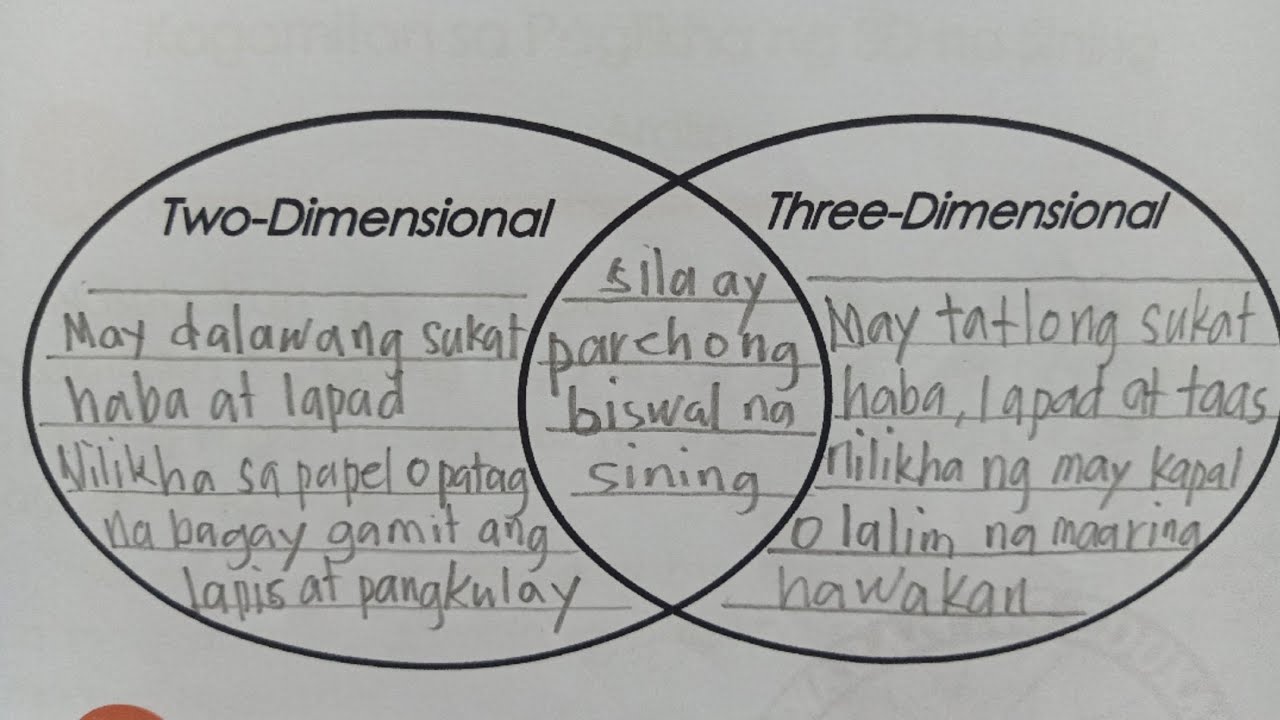 Two-Dimensional
May dalawang sukat
haba at lapad
Nilikha sa papel o patag
na bagay gamit ang
lapis at pangkulay
sila ay
parehong
biswal na
sining
Three-Dimensional
May tatlong sukat
haba, lapad at taas
nilikha ng may kapal
o lalim na maaring
hawakan